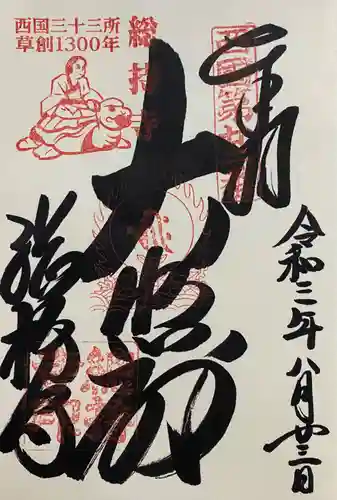 西国三十三所
草創1300年
総持寺
西國第廿二番
奉拝
大悲殿
総持寺
令和三年八月廿三日